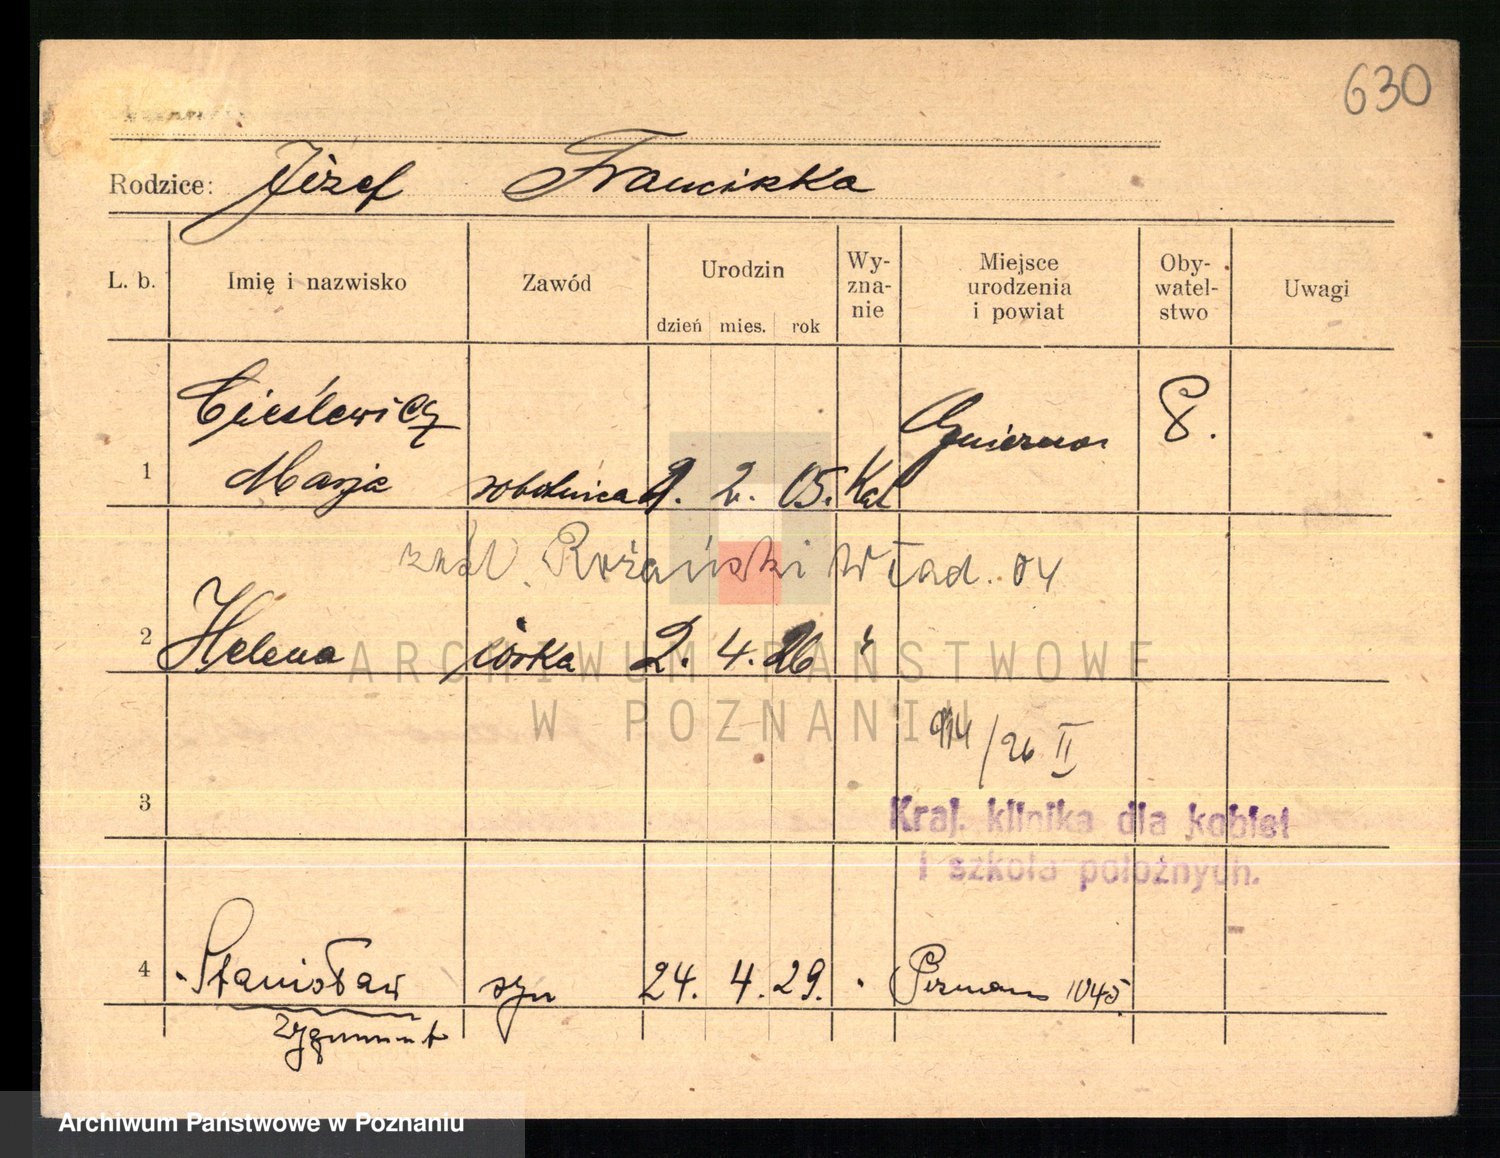 630
Rodzice: Józef Franciszka
L. b. Imię i nazwisko Zawód Urodzin dzień mies. rok Wy-zna-nie Miejsce urodzenia i powiat Oby-watel-stwo Uwagi
Cieślewicz P.
1 Marja robotnica 2. 05. Kat
Rożański Wład. 04
2 Helena córka 2. 4. 26
ARCHIWUM PAŃSTWOWE
W POZNANIU
/26 II
3
Kraj. klinika dla kobiet
i szkoła położnych.
4 Stanisław syn 24. 4. 29. Poznań 1045
Zygmunt
Archiwum Państwowe w Poznaniu